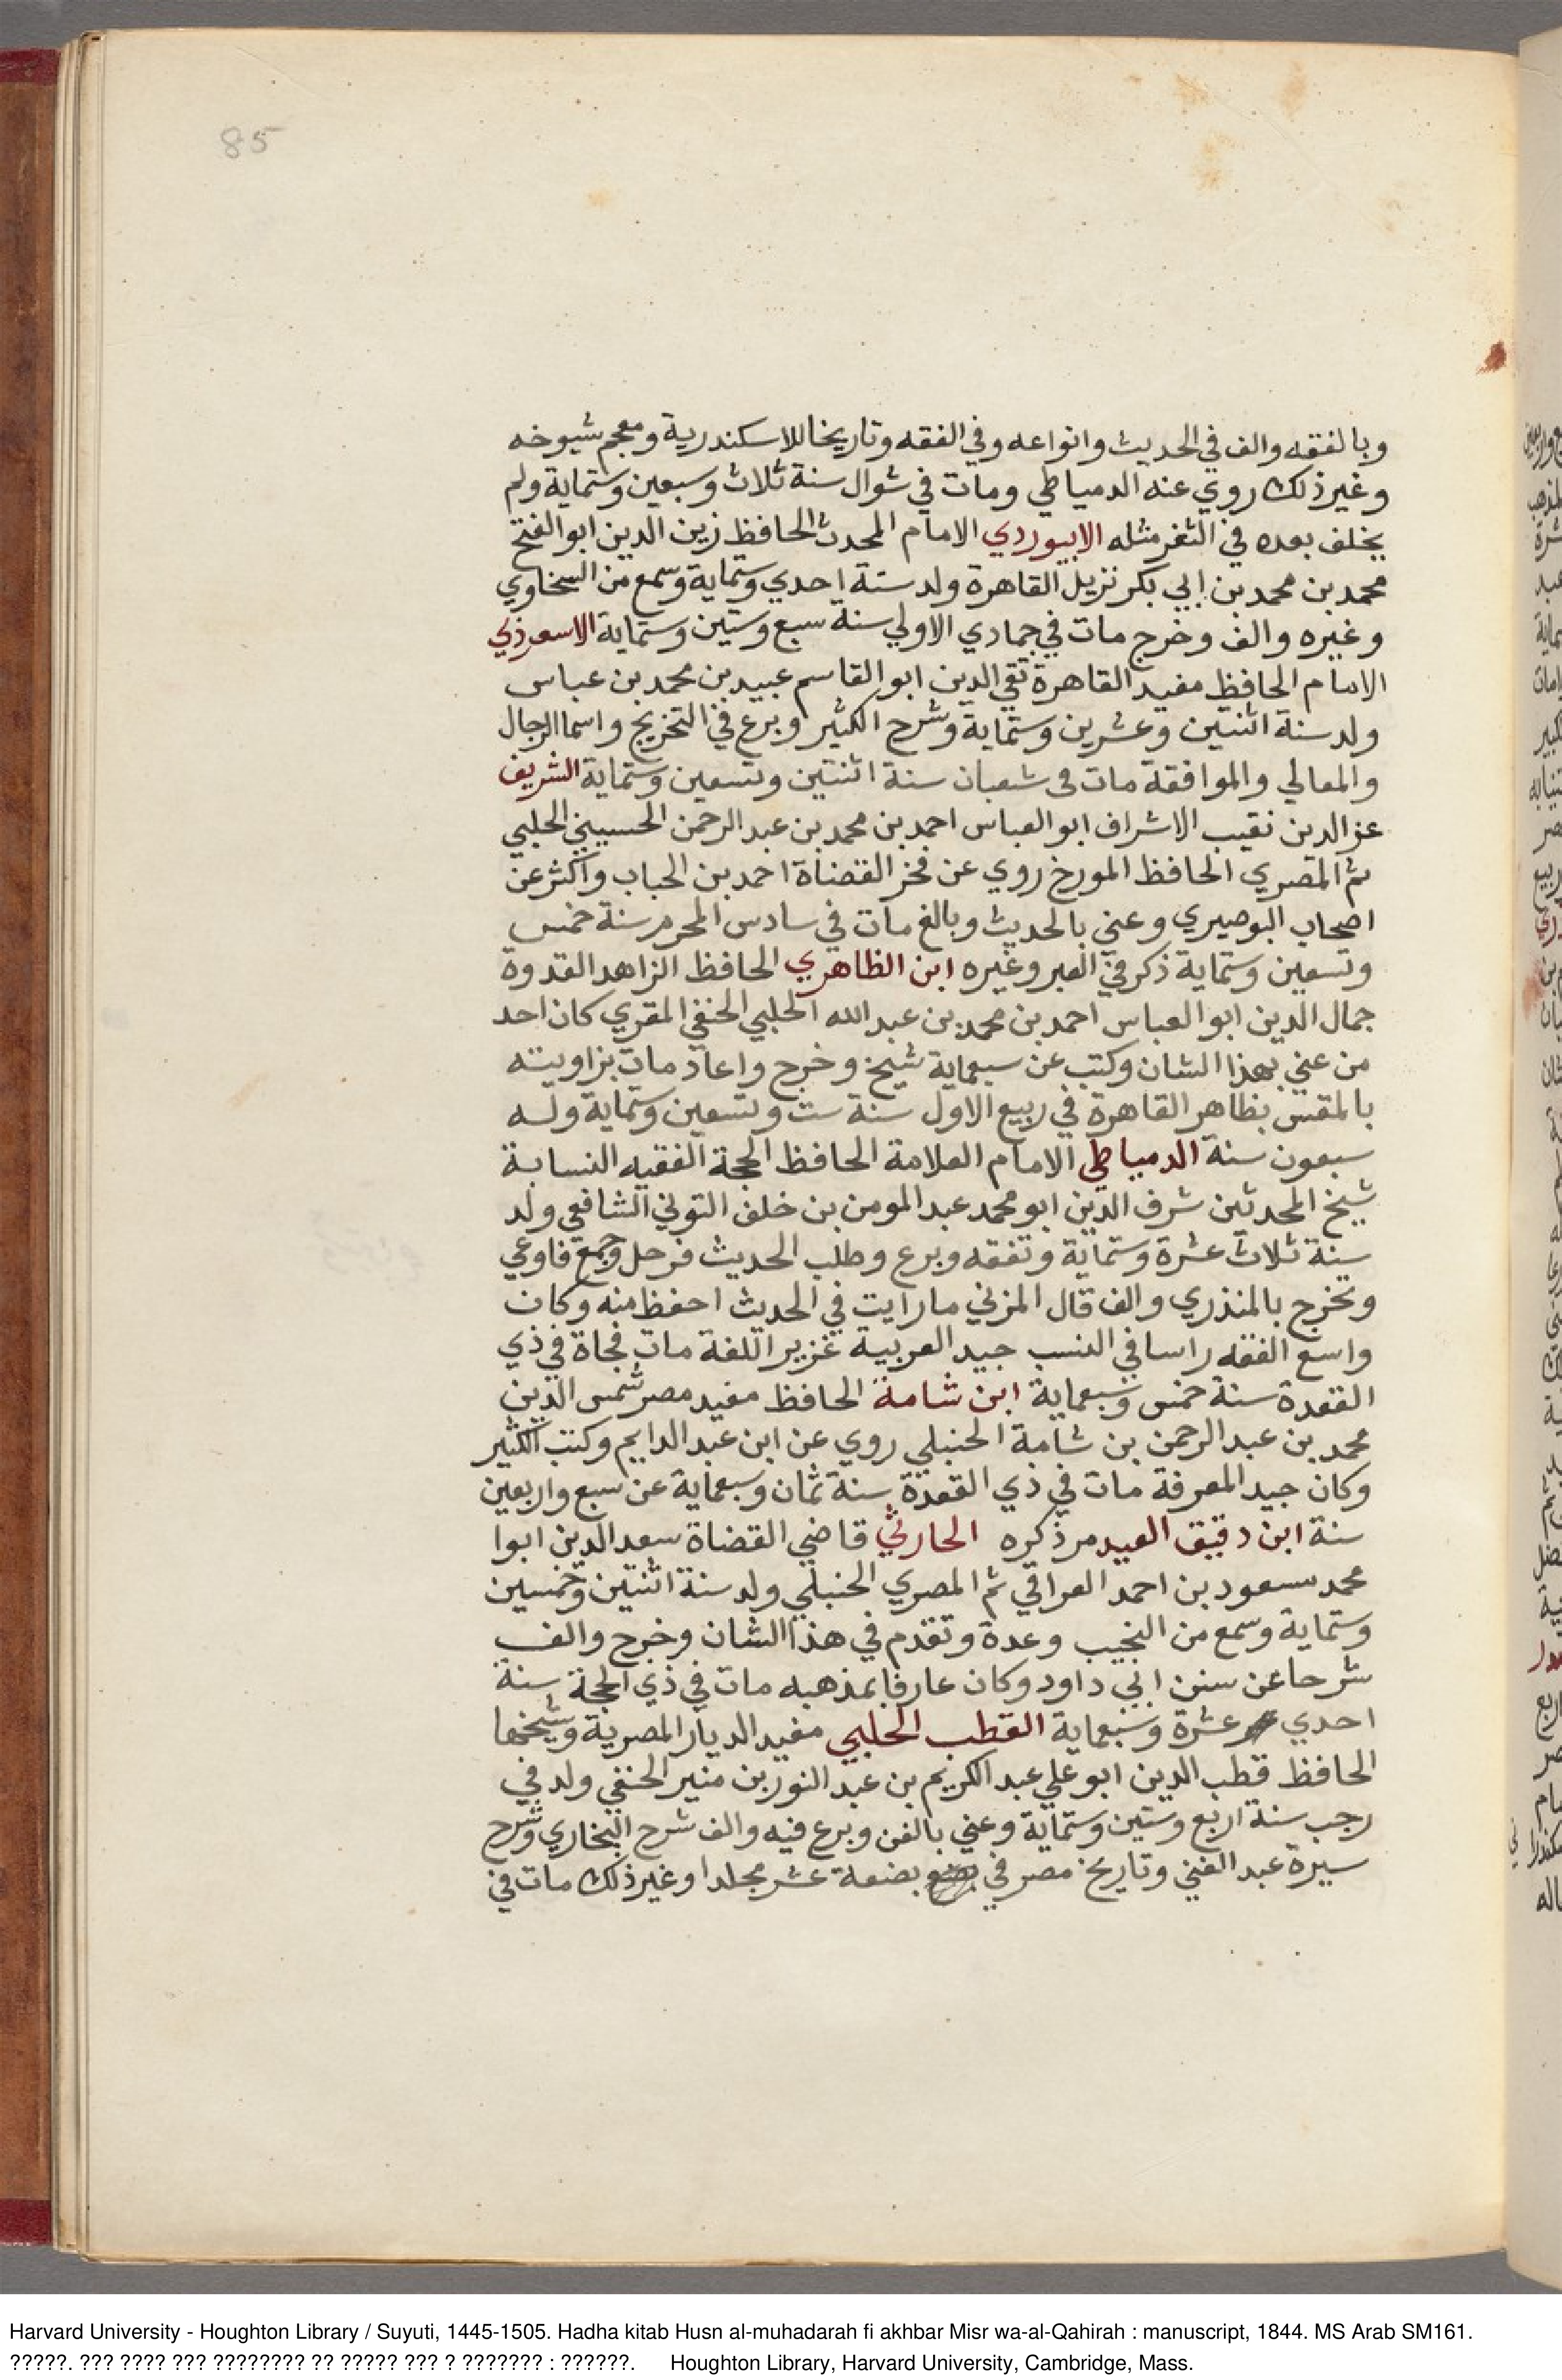 85
وبالفقه والف في الحديث وانواعه وفي الفقه وتاريخا للاسكندرية ومعجم شيوخه
وغير ذلك روي عنه الدمياطي ومات في شوال سنة ثلاث وسبعين وستماية ولم
يخلف بعده في الثغر مثله الابيوردي الامام المحدث الحافظ زين الدين ابو الفتح
محمد بن محمد بن ابي بكر نزيل القاهرة ولد سنة احدي وستماية وسمع من السخاوي
وغيره والف وخرج مات في جمادي الاولي سنة سبع وستين وستماية الاسعرذي
الامام الحافظ مفيد القاهرة تقي الدين ابو القاسم عبيد بن محمد بن عباس
ولد سنة اثنتين وعشرين وستماية وشرح الكثير وبرع في التخريج واسما الرجال
والمعالي والموافقة مات في شعبان سنة اثنتين وتسعين وستماية الشريف
عز الدين نقيب الاشراف ابو العباس احمد بن محمد بن عبد الرحمن الحسيني الحلبي
ثم المصري الحافظ المورخ روي عن فخر القضاة احمد بن الحباب واكثر عن
اصحاب البوصيري وعني بالحديث وبالغ مات في سادس المحرم سنة خمس
وتسعين وستماية ذكر في العبر وغيره ابن الظاهري الحافظ الزاهد القدوة
جمال الدين ابو العباس احمد بن محمد بن عبد الله الحلبي الحنفي المقري كان احد
من عني بهذا الشان وكتب عن سبعماية شيخ وخرج واعاد مات بزاويته
بالمقس بظاهر القاهرة في ربيع الاول سنة ست وتسعين وستماية وله
سبعون سنة الدمياطي الامام العلامة الحافظ الحجة الفقيه النسابة
شيخ المحدثين شرف الدين ابو محمد عبد المومن بن خلف التوني الشافعي ولد
سنة ثلاث عشرة وستماية وتفقه وبرع وطلب الحديث فرحل وجمع فاوعي
وتخرج بالمنذري والف قال المزني ما رايت في الحديث احفظ منه وكان
واسع الفقه راسا في النسب جيد العربية غزير اللغة مات فجاة في ذي
القعدة سنة خمس وسبعماية ابن شامة الحافظ مفيد مصر شمس الدين
محمد بن عبد الرحمن بن شامة الحنبلي روي عن ابن عبد الدايم وكتب الكثير
وكان جيد المعرفة مات في ذي القعدة سنة ثمان وسبعماية عن سبع واربعين
سنة ابن دقيق العيد مر ذكره الحارثي قاضي القضاة سعد الدين ابوا
محمد مسعود بن احمد العراقي ثم المصري الحنبلي ولد سنة اثنتين وخمسين
وستماية وسمع من النجيب وعدة وتقدم في هذا الشان وخرج والف
شرحا عن سنن ابي داود وكان عارفا بمذهبه مات في ذي الحجة سنة
احدي عشرة وسبعماية القطب الحلبي مفيد الديار المصرية وشيخها
الحافظ قطب الدين ابو علي عبد الكريم بن عبد النور بن منير الحنفي ولد في
رجب سنة اربع وستين وستماية وعني بالفن وبرع فيه والف شرح البخاري وشرح
سيرة عبد الغني وتاريخ مصر في بضعة عشر مجلدا وغير ذلك مات في
Harvard University - Houghton Library / Suyuti, 1445-1505. Hadha kitab Husn al-muhadarah fi akhbar Misr wa-al-Qahirah : manuscript, 1844. MS Arab SM161.
?????. ??? ???? ??? ???????? ?? ????? ??? ? ??????? : ??????. Houghton Library, Harvard University, Cambridge, Mass.